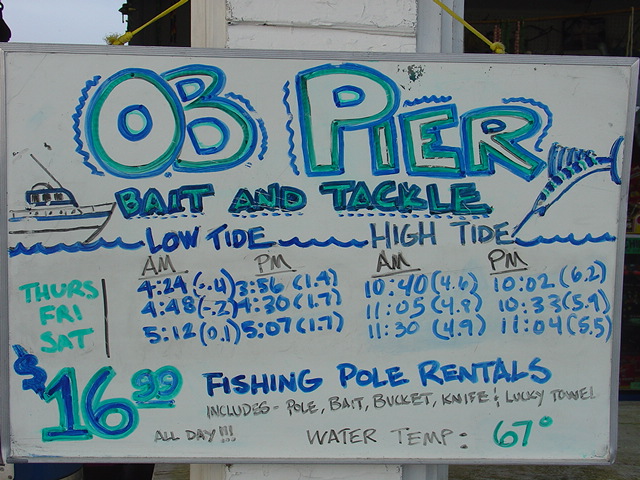 OB PIER
BAIT AND TACKLE
LOW TIDE HIGH TIDE
AM PM AM PM
THURS 4:24 (-.4) 3:56 (1.4) 10:40 (4.6) 10:02 (6.2)
FRI 4:48 (-.2) 4:30 (1.7) 11:05 (4.8) 10:33 (5.9)
SAT 5:12 (0.1) 5:07 (1.7) 11:30 (4.9) 11:04 (5.5)
$16.99 FISHING POLE RENTALS
INCLUDES - POLE, BAIT, BUCKET, KNIFE & LUCKY TOWEL
ALL DAY!!! WATER TEMP: 67°